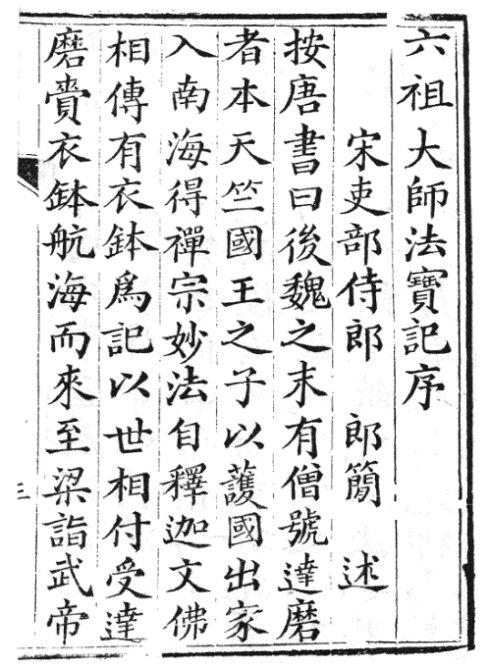 六祖大師法寶記序
宋吏部侍郎 郎簡 述
按唐書曰後魏之末有僧號達磨
者本天竺國王之子以護國出家
入南海得禪宗妙法自釋迦文佛
相傳有衣鉢爲記以世相付受達
磨賷衣鉢航海而來至梁詣武帝
三